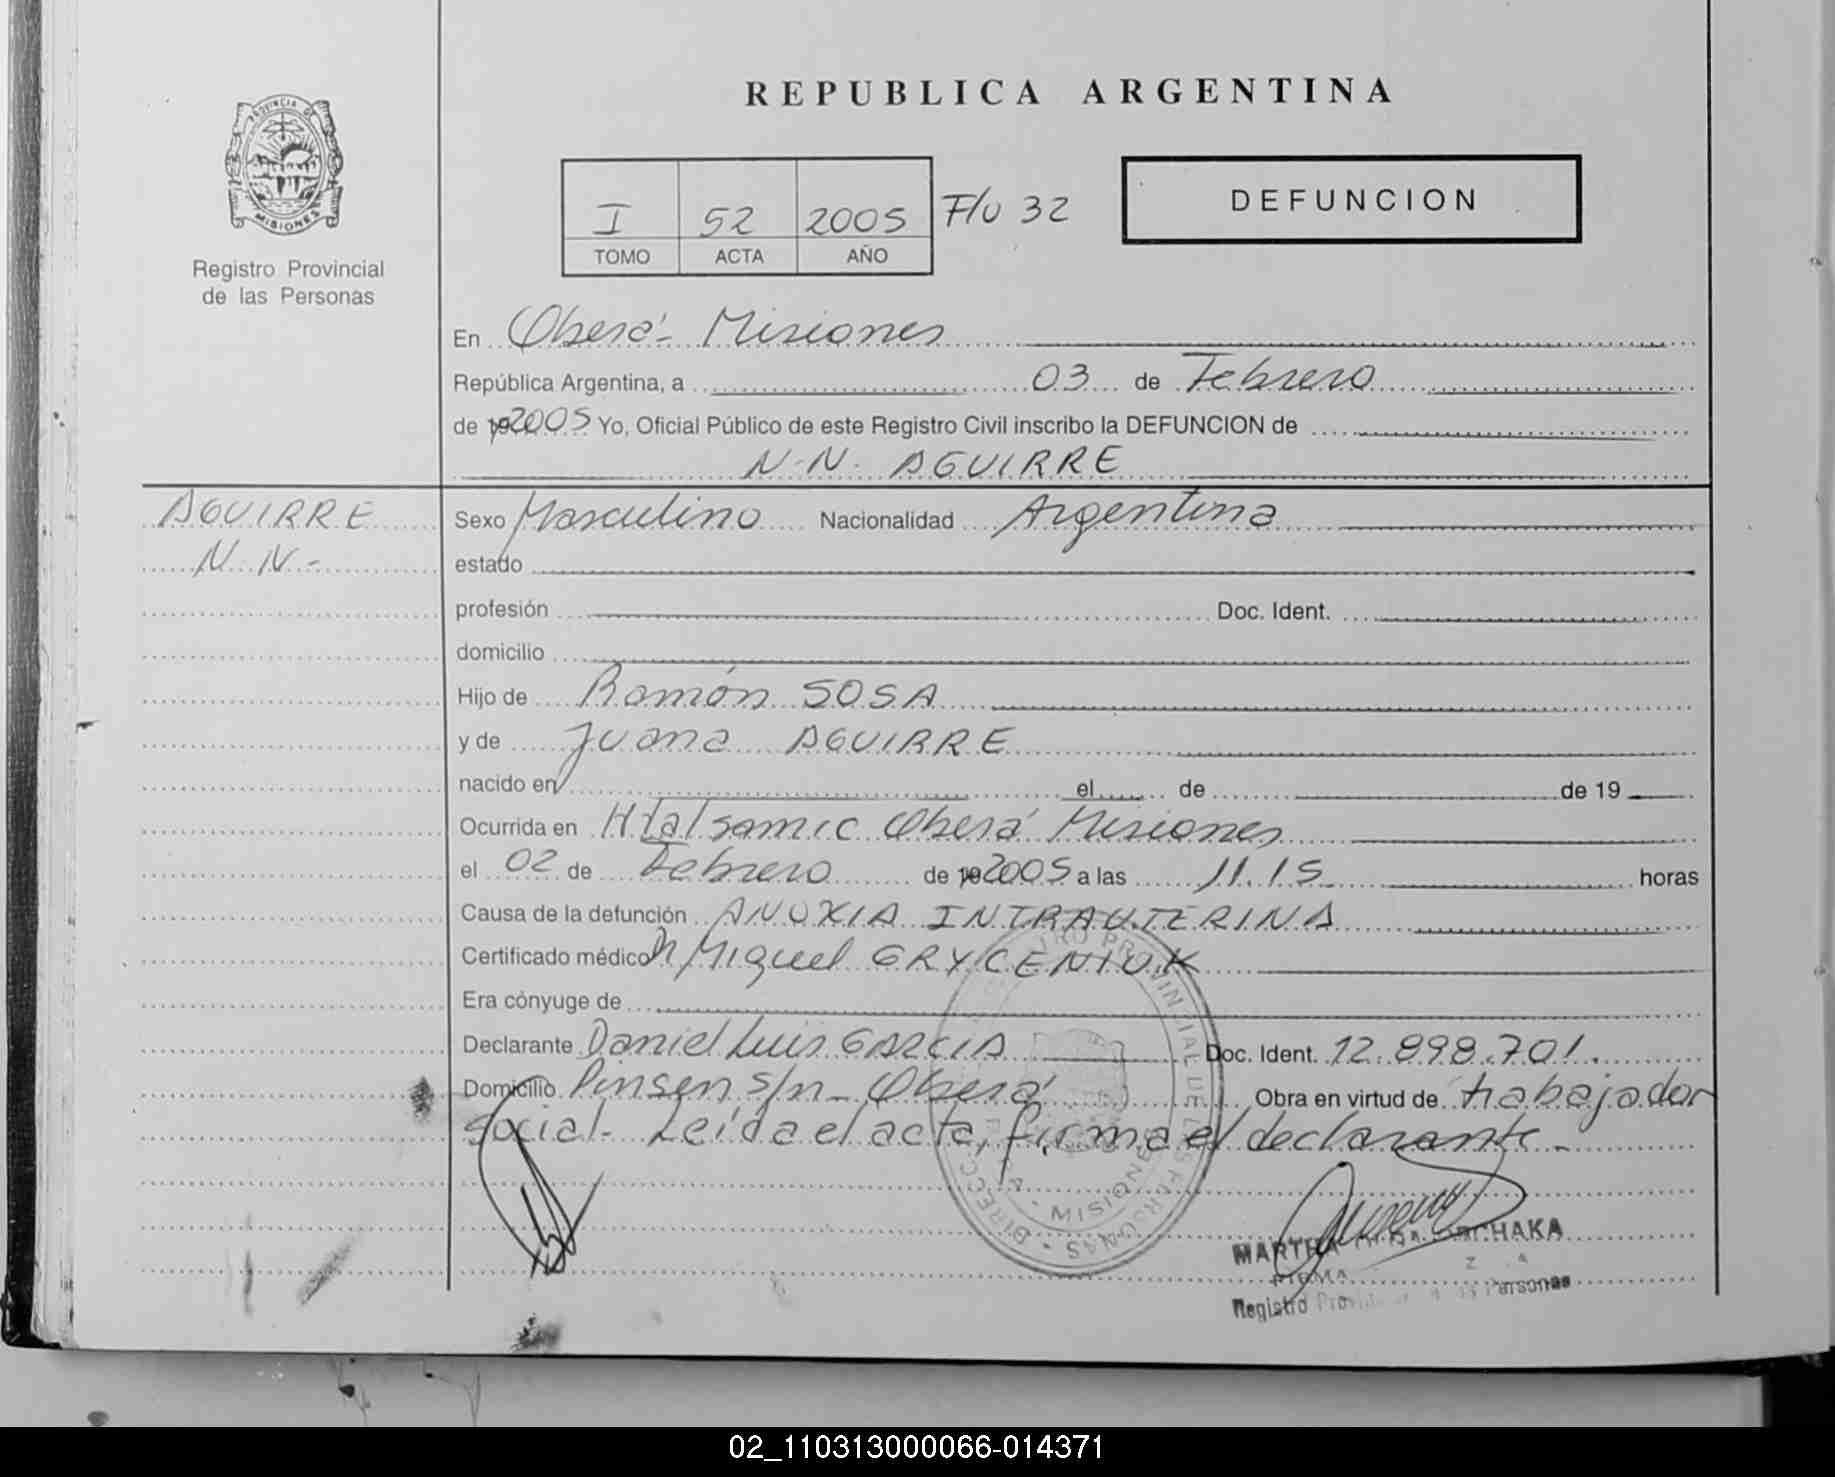 PROVINCIA DE
MISIONES
Registro Provincial
de las Personas
REPUBLICA ARGENTINA
I 52 2005 F/U 32
TOMO ACTA AÑO
DEFUNCION
En Oberá - Misiones
República Argentina, a 03 de Febrero
de 19 2005 Yo, Oficial Público de este Registro Civil inscribo la DEFUNCION de
N.N. AGUIRRE
AGUIRRE
N.N.-
Sexo Masculino Nacionalidad Argentina
estado
profesión Doc. Ident.
domicilio
Hijo de Ramón SOSA
y de Juana AGUIRRE
nacido en el de de 19
Ocurrida en Htal Samic Oberá Misiones
el 02 de Febrero de 19 2005 a las 11.15 horas
Causa de la defunción ANOXIA INTRAUTERINA
Certificado médico Dr Miguel GRYCENIUK
Era cónyuge de
Declarante Daniel Luis GARCIA Doc. Ident. 12.898.701.
Domicilio Pinsen s/n - Oberá Obra en virtud de trabajador
social - Leída el acta, firma el declarante -
PROVINCIAL DE LAS PERSONAS
MISIONES
MARTHA
Registro Personas
02_110313000066-014371